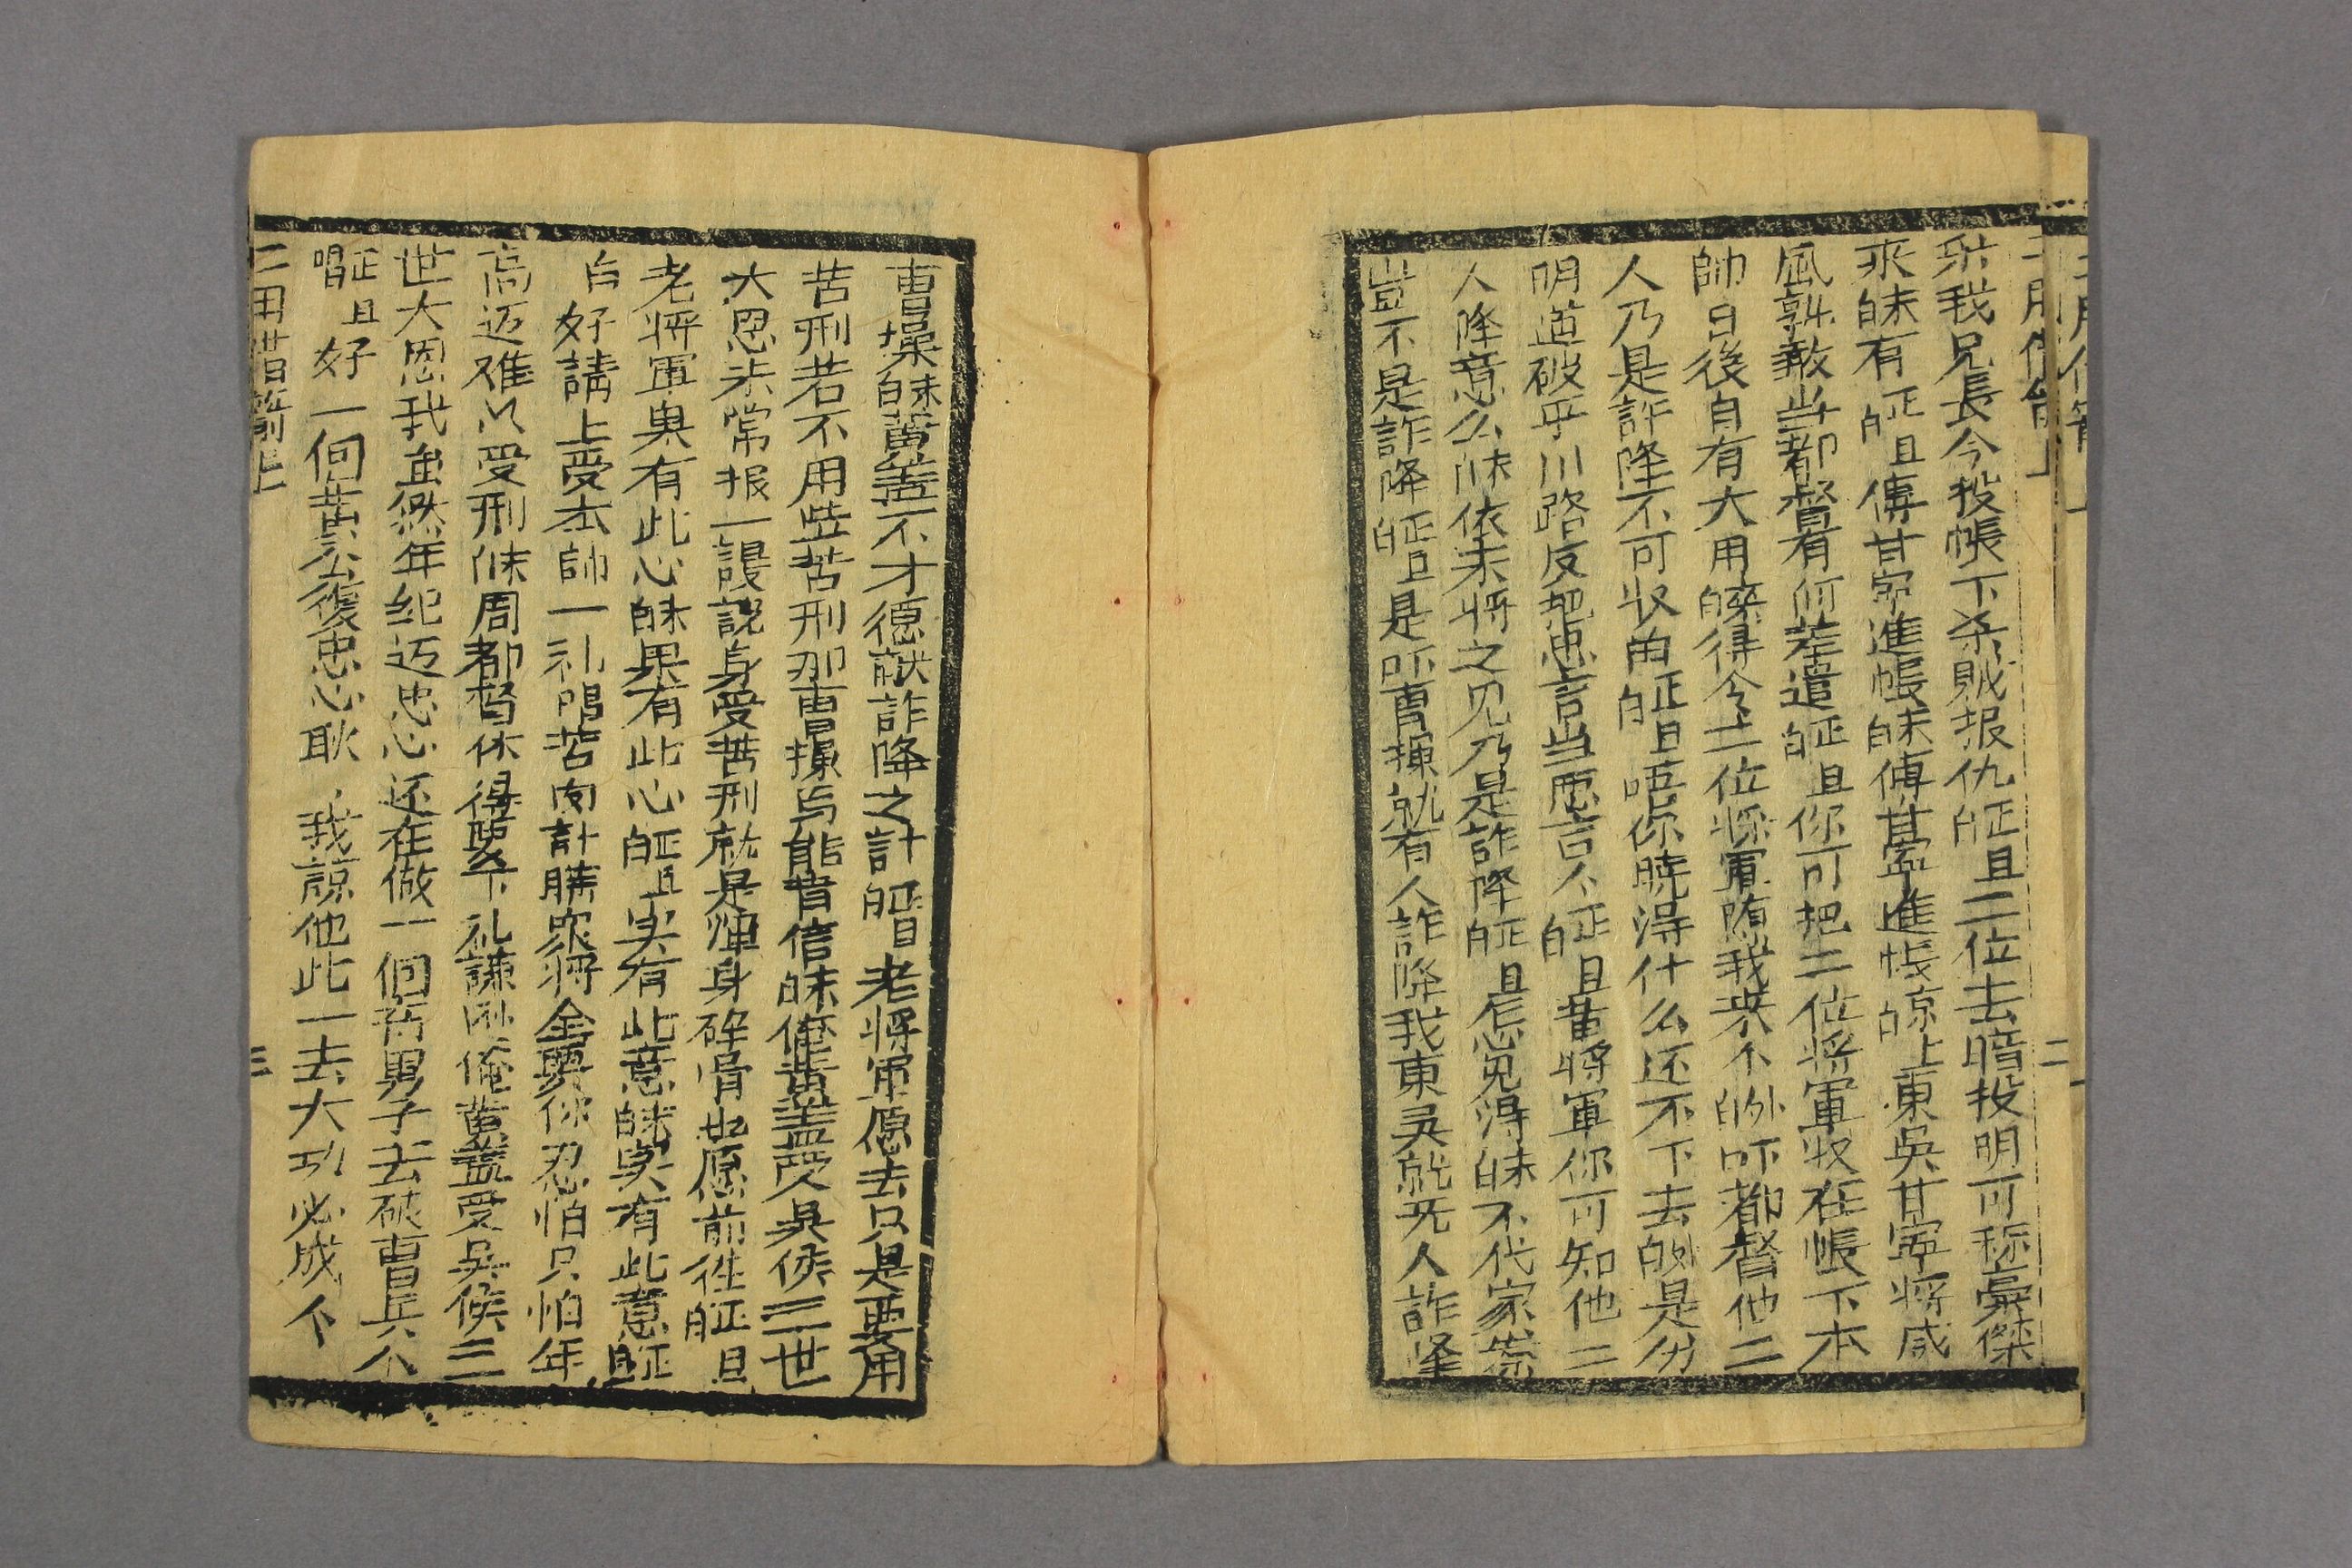 我兄長今投帳下杀賊报仇白正且二位去暗投明可称豪傑
來白末有白正且傳甘寧進帳白末傳甘寧進帳白凉上東吳甘寧将咸
風孰敢当都督有何差遣白正且你可把二位将軍收在帳下本
帥日後自有大用白蔡得令二位将軍随我来不白外吓都督他二
人乃是詐降不可收的白正且唔你曉得什么还不下去白外是分
明道破平川路反把忠言当恶言介白正且黄将軍你可知他二
人降意么末依末将之见乃是詐降白正且怎見得白末不代家
豈不是詐降白正且是吓曹操就有人詐降我東吳就无人詐降
曹操白末黄盖不才愿献詐降之計白且老将軍愿去只是要用
苦刑若不用些苦刑那曹操与能肯信白末俺黄盖受吳侯三世
大恩未常报一謾説身受苦刑就是渾身碎骨也愿前往白正且
老将軍果有此心白末果有此心白正且实有此意白末实有此意正且
白好請上受本帥一礼唱苦肉計瞒眾将全要你忍怕只怕年
高迈难以受刑末周都督休得要下礼謙俺黄盖受吳侯三
世大恩我虽然年纪迈忠心还在做一個奇男子去破曹兵介
唱正且好一個黄公復忠心耿我諒他此一去大功必成介
三用借箭上 三